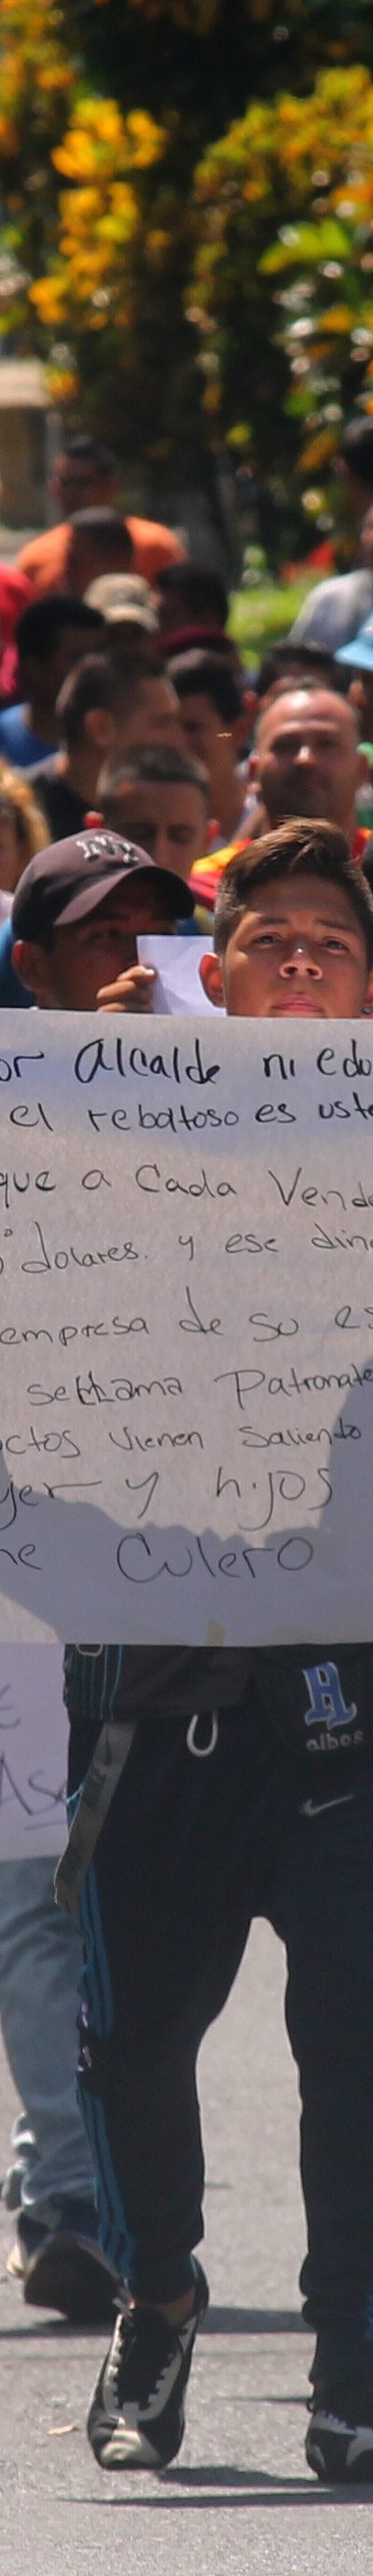 NY
or Alcalde ni edu
el rebatoso es uste
que a Cada Vende
dolares. y ese dine
empresa de su es
se llama Patronate
ctos vienen saliendo
jer y hijos
ne Culero
E
Ase
H
albos